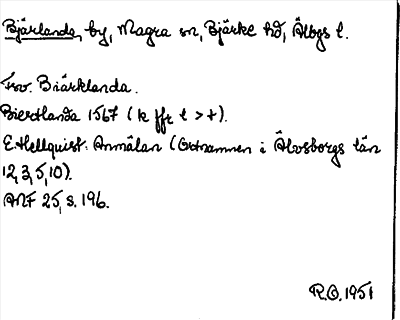 Bjärlanda, by, Magra sn, Bjärke hd, Älvbgs l.
Fsv. Biärklanda.
Biertlanda 1567 (k fft t > t).
E. Hellquist: Anmälan (Ortnamnen i Älvsborgs län
12, 3, 5, 10).
ANF 25, s. 196.
R.O. 1951